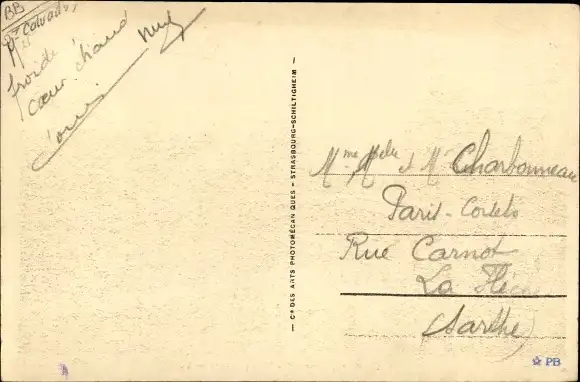 BB
Calvados
froide
cœur chaud
— Cie DES ARTS PHOTOMÉCANIQUES — STRASBOURG-SCHILTIGHEIM —
Mme, Melle et Mr Charbonneau
Paris-
Rue Carnot
La Flèche
(Sarthe)
☆ PB